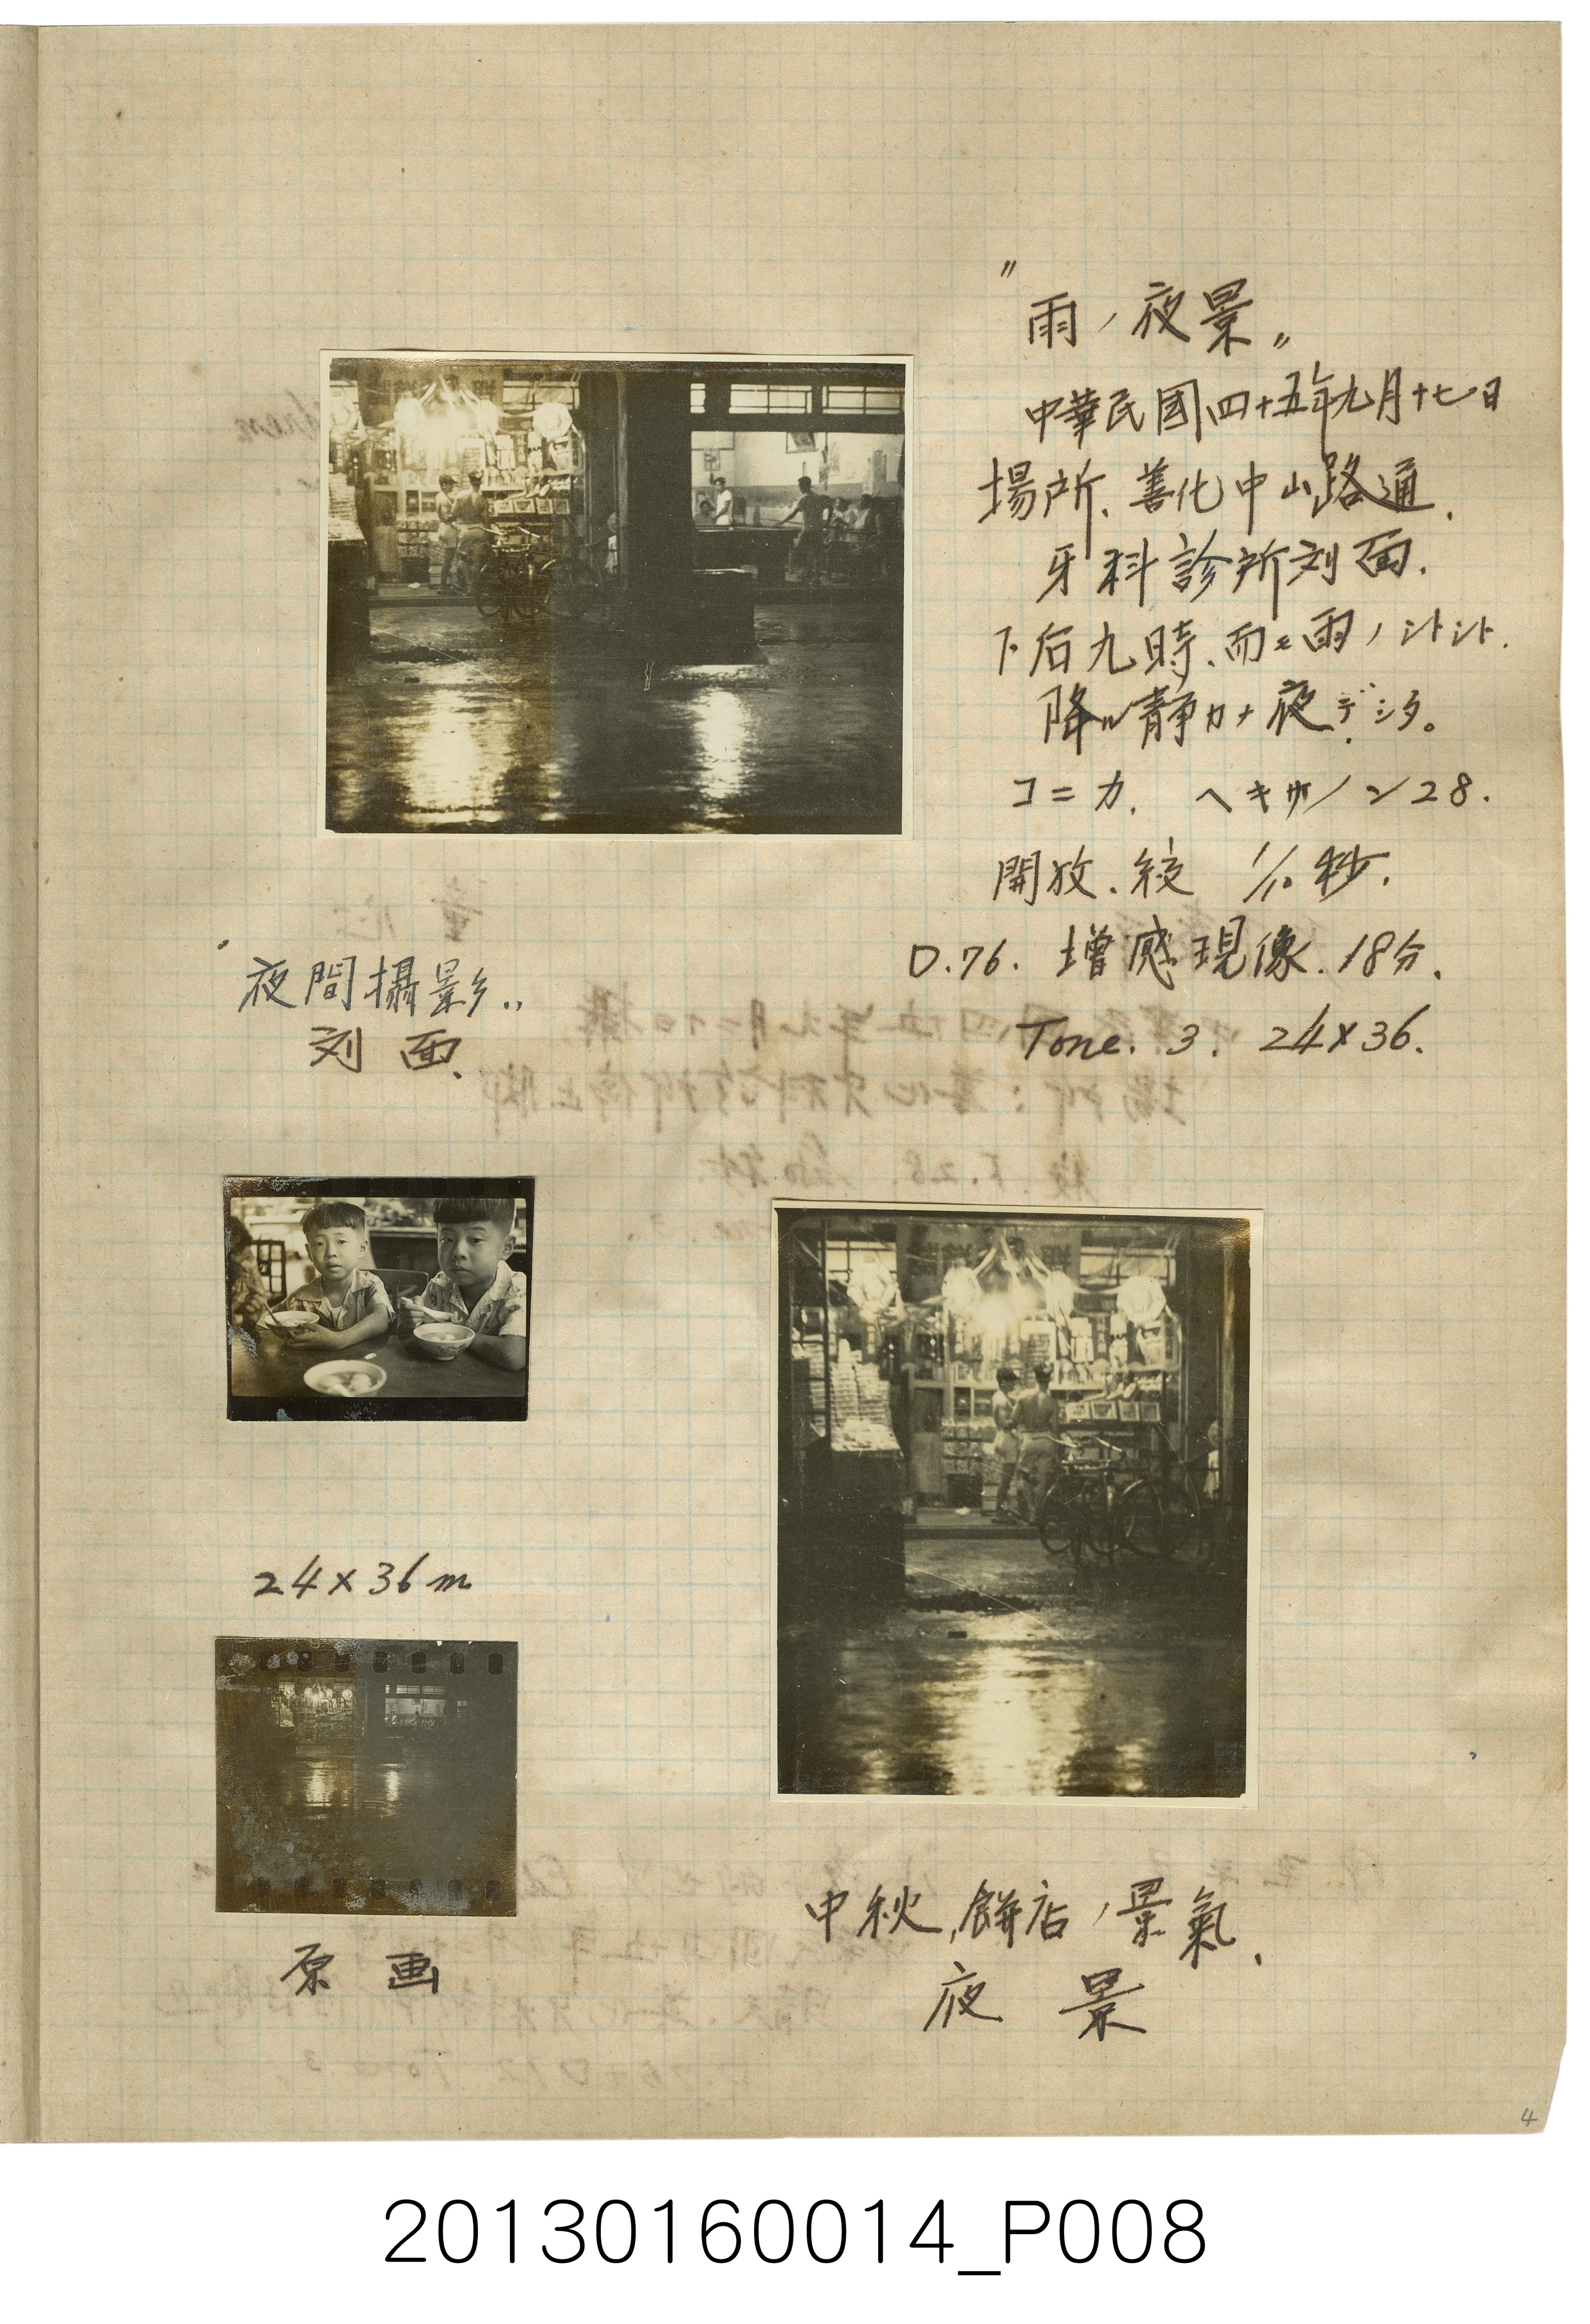 〃雨ノ夜景〃
中華民國四十五年九月十七日
場所、善化中山路通.
牙科診所対面.
下后九時、而モ雨ノシトシト.
降ル静カナ夜デシタ。
コニカ. ヘキサノン28.
開放.絞 1/10秒.
D.76. 増感現像.18分.
Tone. 3. 24×36.
夜間攝影..
対面.
24×36m
原画
中秋,餅店ノ景氣、
夜景
4
20130160014_P008